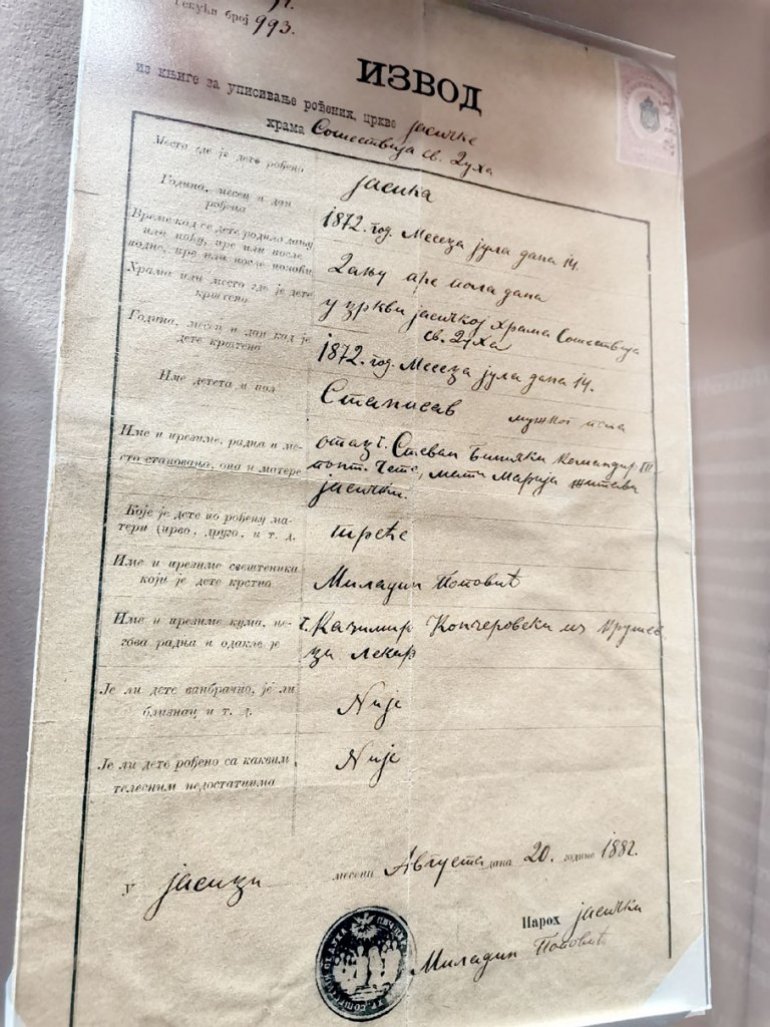 Текући број 993.
ИЗВОД
из књиге за уписивање рођених, цркве јасичке
храма Сошествија св. Духа
Место где је дете рођено
Јасика
Година, месец и дан
рођења
1872. год. Месеца јула дана 14.
Време кад се дете родило дању
или ноћу, пре или после
подне, пре или после поноћи
Дању пре пола дана
Храма или место где је дете
крштено
у цркви јасичкој храма Сошествија
св. Духа
Година, месец и дан кад је
дете крштено
1872. год. Месеца јула дана 14.
Име детета и пол
Станисав мушког пола
Име и презиме, радња и ме-
ста становања, оца и матере
отац г. Стеван Бинички Командир III
мати Марија
јасички.
Које је дете по рођењу ма-
тери (прво, друго, и т. д.
треће
Име и презиме свештеника
који је дете крстио
Миладин Поповић
Име и презиме кума, ње-
гова радња и одакле је
г. Казимир Кончеровски из Круше
ца лекар
Је ли дете ванбрачно, је ли
близнац и т. д.
Није
Је ли дете рођено са каквим
телесним недостатцима
Није
У Јасици месеца Августа дана 20. године 1882.
Парох јасички
Миладин Поповић